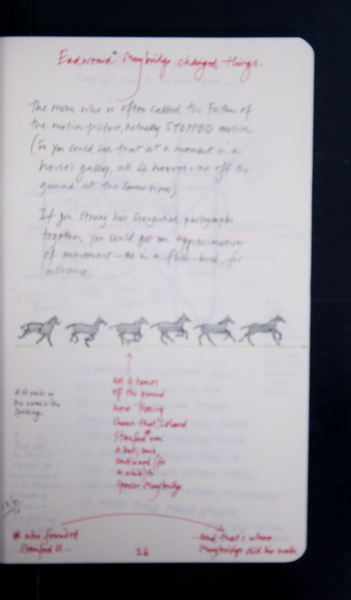 Eadweard* Muybridge changed things.
The man who is often called the Father of
the motion-picture, actually STOPPED motion.
(So you could see that at a moment in a
horse's gallop, all 4 hooves are off the
ground at the same time)
If you string his sequential photographs
together, you could get an approximation
of movement—as in a flip-book, for
instance.
all 4 hooves
off the ground
here. Having
shown that, Leland
Stanford* won
a bet, and
continued (for
a while) to
sponsor Muybridge
the
spelling.
* who founded
Stanford U—
26
—and that's where
Muybridge did his work.